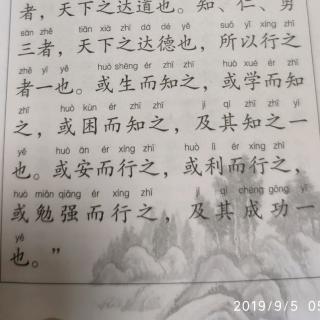 者，天下之达道也。知、仁、勇
sān zhě tiān xià zhī dá dé yě suǒ yǐ xíng zhī
三者，天下之达德也，所以行之
zhě yī yě huò shēng ér zhī zhī huò xué ér zhī
者一也。或生而知之，或学而知
zhī huò kùn ér zhī zhī jí qí zhī zhī yī
之，或困而知之，及其知之一
yě huò ān ér xíng zhī huò lì ér xíng zhī
也。或安而行之，或利而行之，
huò miǎn qiǎng ér xíng zhī jí qí chéng gōng yī
或勉强而行之，及其成功一
yě
也。”
2019/9/5